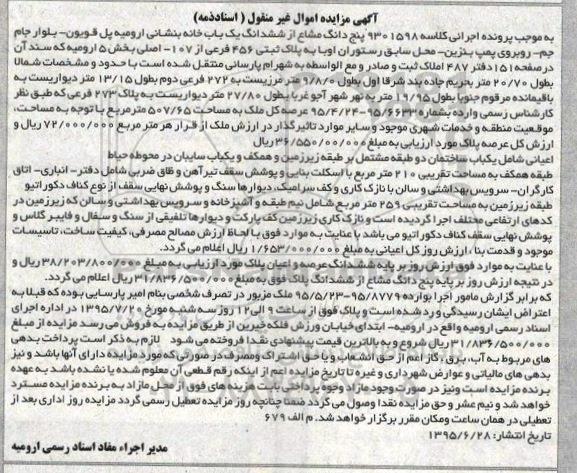 آگهی مزایده اموال غیر منقول (اسنادذمه)
به موجب پرونده اجرائی کلاسه ۹۳۰۱۵۹۸ پنج دانگ مشاع از ششدانگ یک باب خانه بنشانی ارومیه پل قویون- بلوار جام
جم- روبروی پمپ بنزین- محل سابق رستوران اوبا به پلاک ثبتی ۴۵۶ فرعی از ۱۰۷- اصلی بخش ۵ ارومیه که سند آن
در صفحه ۱۵۱ دفتر ۴۸۷ املاک ثبت و صادر و مع الواسطه به شهرام پارسائی منتقل شده است با حدود و مشخصات شمالا
بطول ۲۰/۷۰ متر بحریم جاده بند شرقا اول بطول ۹/۸/۰ متر مرزیست به ۲۷۲ فرعی دوم بطول ۱۳/۱۵ متر دیواریست به
باقیمانده مرقوم جنوبا بطول ۱۹/۹۵ متر به نهر شهر آجو غربا بطول ۲۷/۸۰ متر دیواریست به پلاک ۲۷۳ فرعی که طبق نظر
کارشناس رسمی وارده بشماره ۹۵/۶۶۳۳-۹۵/۴/۲۴ عرصه کل ملک به مساحت ۵۰۷/۶۵ مترمربع با توجه به مساحت،
موقعیت منطقه و خدمات شهری موجود و سایر موارد تاثیرگذار در ارزش ملک از قرار هر متر مربع ۷۲/۰۰۰/۰۰۰ ریال و
ارزش کل عرصه پلاک مورد ارزیابی به مبلغ ۳۶/۵۵۰/۰۰۰/۰۰۰ ریال
اعیانی شامل یکباب ساختمان دو طبقه مشتمل بر طبقه زیرزمین و همکف و یکباب سایبان در محوطه حیاط
طبقه همکف به مساحت تقریبی ۲۱۰ متر مربع با اسکلت بنایی و پوشش سقف تیرآهن و طاق ضربی شامل دفتر- انباری- اتاق
کارگران- سرویس بهداشتی و سالن با نازک کاری و کف سرامیک، دیوارها سنگ و پوشش نهایی سقف از نوع کناف دکوراتیو
طبقه زیرزمین به مساحت تقریبی ۲۵۹ متر مربع شامل نیم طبقه و آشپزخانه و سرویس بهداشتی و سالن که زیرزمین در
کدهای ارتفاعی مختلف اجرا گردیده است و نازک کاری زیرزمین کف پارکت و دیوارها تلفیقی از سنگ و سفال و فایبر گلاس و
پوشش نهایی سقف کناف دکوراتیو می باشد با عنایت به موارد فوق با لحاظ ارزش مصالح مصرفی، کیفیت ساخت، تاسیسات
موجود و قدمت بنا، ارزش روز کل اعیانی به مبلغ ۱/۶۵۳/۰۰۰/۰۰۰ ریال اعلام می گردد.
با عنایت به موارد فوق ارزش روز بر پایه ششدانگ عرصه و اعیان پلاک مورد ارزیابی به مبلغ ۳۸/۲۰۳/۸۰۰/۰۰۰ ریال و
در نتیجه ارزش روز بر پایه پنج دانگ مشاع از ششدانگ پلاک فوق به مبلغ ۳۱/۸۳۶/۵۰۰/۰۰۰ ریال اعلام می گردد.
که برابر گزارش مامور اجرا بوارده ۹۵/۸۷۷۹-۹۵/۵/۲۳ ملک مزبور در تصرف شخصی بنام امیر پارسایی بوده که قبلا به
اعتراض ایشان رسیدگی و رد شده است و پلاک فوق از ساعت ۹ الی ۱۲ روز سه شنبه مورخ ۱۳۹۵/۷/۲۰ در اداره اجرای
اسناد رسمی ارومیه واقع در ارومیه- ابتدای خیابان ورزش فلکه خیرین از طریق مزایده به فروش می رسد مزایده از مبلغ
۳۱/۸۳۶/۵۰۰/۰۰۰ ریال شروع و به بالاترین قیمت پیشنهادی نقدا فروخته می شود لازم به ذکر است پرداخت بدهی
های مربوط به آب، برق، گاز اعم از حق انشعاب و یا حق اشتراک و مصرف در صورتی که مورد مزایده دارای آنها باشد و نیز
بدهی های مالیاتی و عوارض شهرداری و غیره تا تاریخ مزایده اعم از اینکه رقم قطعی آن معلوم شده یا نشده باشد به عهده
برنده مزایده است و نیز در صورت وجود مازاد وجوه پرداختی بابت هزینه های فوق از محل مازاد به برنده مزایده مسترد
خواهد شد و نیم عشر و حق مزایده نقدا وصول می گردد ضمنا چنانچه روز مزایده تعطیل رسمی گردد مزایده روز اداری بعد از
تعطیلی در همان ساعت و مکان مقرر برگزار خواهد شد. م الف ۶۷۹
تاریخ انتشار: ۱۳۹۵/۶/۲۸
مدیر اجراء مفاد اسناد رسمی ارومیه